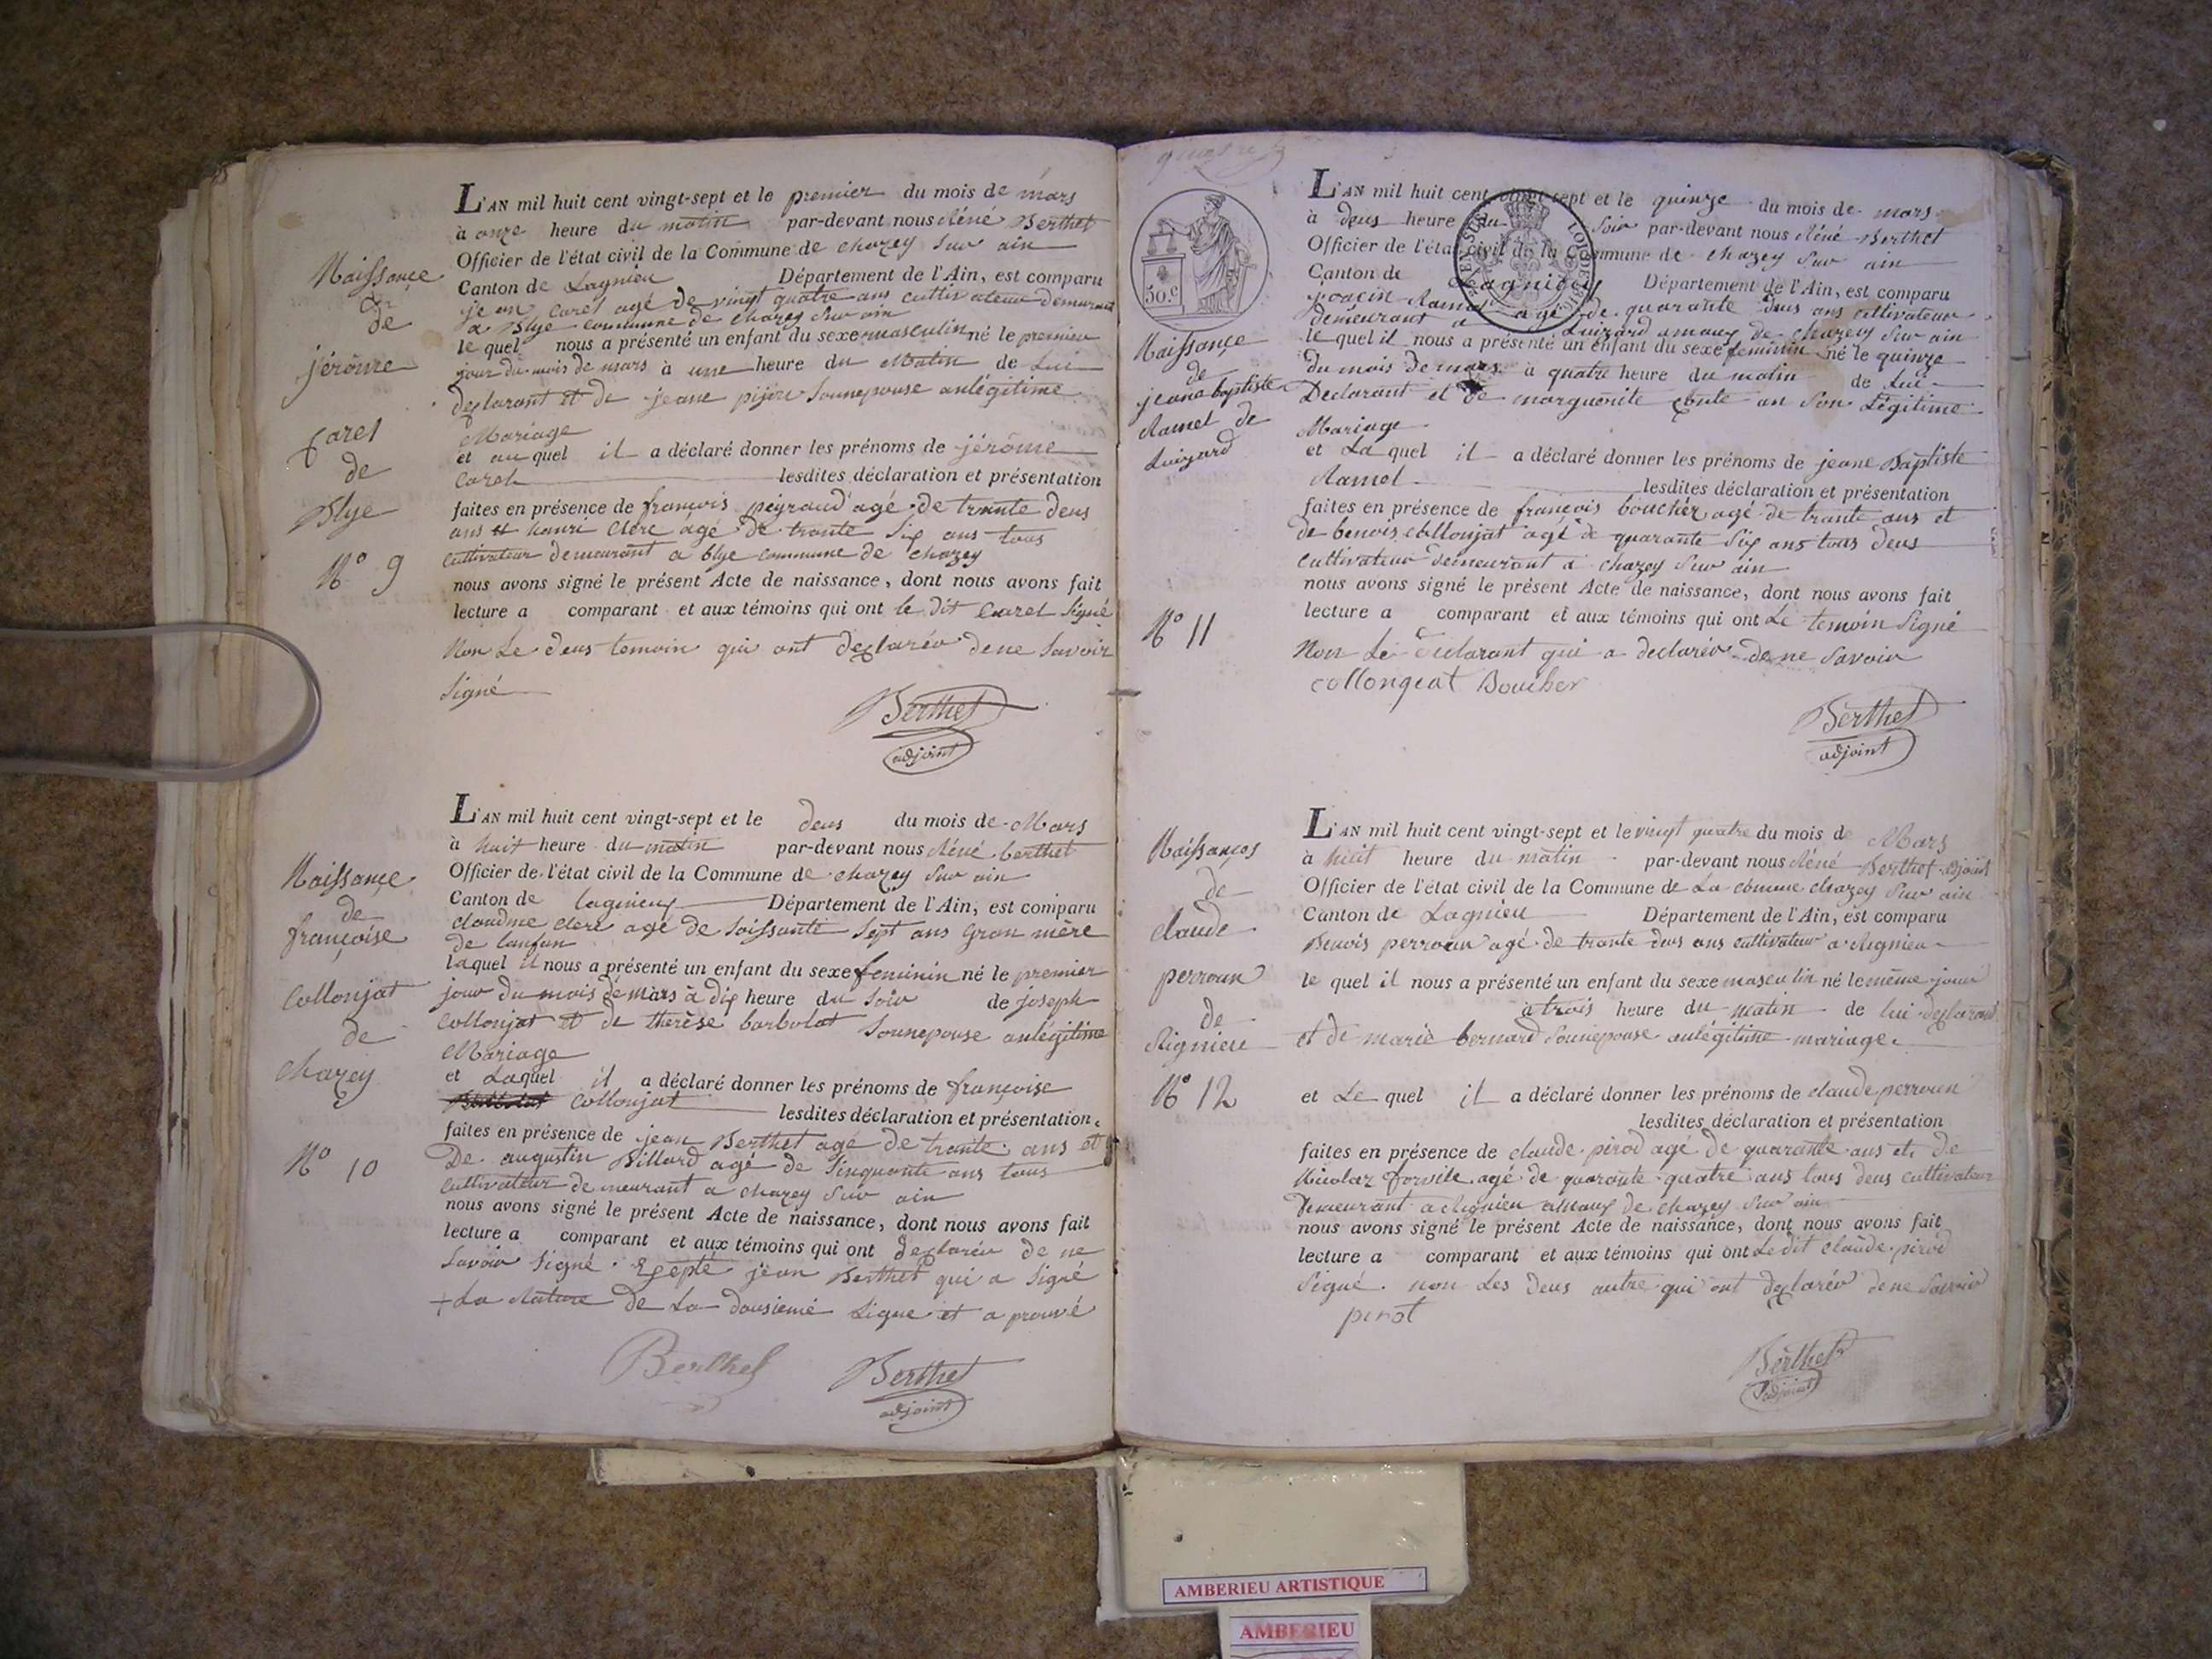 Naissance
de
jérôme
Carel
de
Blye
N° 9
L'AN mil huit cent vingt-sept et le premier du mois de mars
à onze heure du matin par-devant nous Réné Berthet
Officier de l'état civil de la Commune de chazey Sur ain
Canton de Lagnieu Département de l'Ain, est comparu
jean Carel agé de vingt quatre ans cultivateur demurant
a Blye commune de chazey Sur ain
le quel nous a présenté un enfant du sexe masculin né le premier
jour du mois de mars à une heure du Matin de Lui
declarant et de jeane pijou Sounepouse anlégitime
Mariage
et au quel il a déclaré donner les prénoms de jérôme
Carel lesdites déclaration et présentation
faites en présence de françois peyraud agé de trante deus
ans et henri Clerc agé de trante Six ans tous
cultivateur demeurant a blye commune de chazey
nous avons signé le présent Acte de naissance, dont nous avons fait
lecture a comparant et aux témoins qui ont le dit Carel Signé
Non Le deus temoin qui ont declaréo dene Savoir
Signé
Berthet
adjoint
Naissance
de
françoise
Collonjat
de
Chazey
N° 10
L'AN mil huit cent vingt-sept et le deus du mois de Mars
à huit heure du matin par-devant nous Réné berthet
Officier de l'état civil de la Commune de chazey Sur ain
Canton de lagnieu Département de l'Ain, est comparu
claudine clerc agé de Soissante Sept ans Gran mere
de lanfan
laquel il nous a présenté un enfant du sexe feminin né le premier
jour du mois de mars à dix heure du Soir de joseph
Collonjat et de therèse barbolat Sounepouse anlégitime
Mariage
et Laquel il a déclaré donner les prénoms de françoise
Collonjat lesdites déclaration et présentation
faites en présence de jean Berthet agé de trante ans et
De augustin Billard agé de Sinquante ans tous
cultivateur demeurant a chazey Sur ain
nous avons signé le présent Acte de naissance, dont nous avons fait
lecture a comparant et aux témoins qui ont declaréo de ne
Savoir Signé Exepté jean Berthet qui a Signé
+ La Rature de La dousieme Ligne et a prouvé
Berthet Berthet
adjoint
50.c
Naissance
de
jeane baptiste
Ramel de
Luizard
N° 11
L'AN mil huit cent vingt-sept et le quinze du mois de mars
à deus heure du Soir par-devant nous Réné Berthet
Officier de l'état civil de la Commune de chazey Sur ain
Canton de Lagnieu Département de l'Ain, est comparu
Ramel agé de quarante deus ans cultivateur
demeurant a Luizard amaux de chazey Sur ain
le quel il nous a présenté un enfant du sexe feminin né le quinze
du mois de mars à quatre heure du matin de Lui
Declarant et de marguerite conte an Son Légitime
Mariage
et La quel il a déclaré donner les prénoms de jeane Baptiste
Ramel lesdites déclaration et présentation
faites en présence de françois boucher agé de trante ans et
de benois collonjat agé de quarante Six ans tous deus
cultivateur demeurant a chazey Sur ain
nous avons signé le présent Acte de naissance, dont nous avons fait
lecture a comparant et aux témoins qui ont Le temoin Signé
Non Le declarant qui a declaréo de ne Savoir
collongeat Boucher
Berthet
adjoint
Naissançes
de
claude
perroun
de
Rignieu
N° 12
L'AN mil huit cent vingt-sept et le vingt quatre du mois de Mars
à huit heure du matin par-devant nous Réné Berthet adjoint
Officier de l'état civil de la Commune de La comune chazey Sur ain
Canton de Lagnieu Département de l'Ain, est comparu
Benois perroun agé de trante deus ans cultivateur a Rignieu
le quel il nous a présenté un enfant du sexe masculin né le même jour
à trois heure du matin de lui declarant
et de marie bernard Sounepouse anlégitime mariage
et Le quel il a déclaré donner les prénoms de claude perroun
lesdites déclaration et présentation
faites en présence de claude pirod agé de quarante ans et de
Nicolas agé de quarante quatre ans tous deus cultivateur
Demeurant a Rignieu amaux de chazey Sur ain
nous avons signé le présent Acte de naissance, dont nous avons fait
lecture a comparant et aux témoins qui ont Le dit claude pirod
Signé non Les deus autre qui ont declaréo dene Savoir
pirot
Berthet
adjoint
AMBERIEU ARTISTIQUE
AMBERIEU